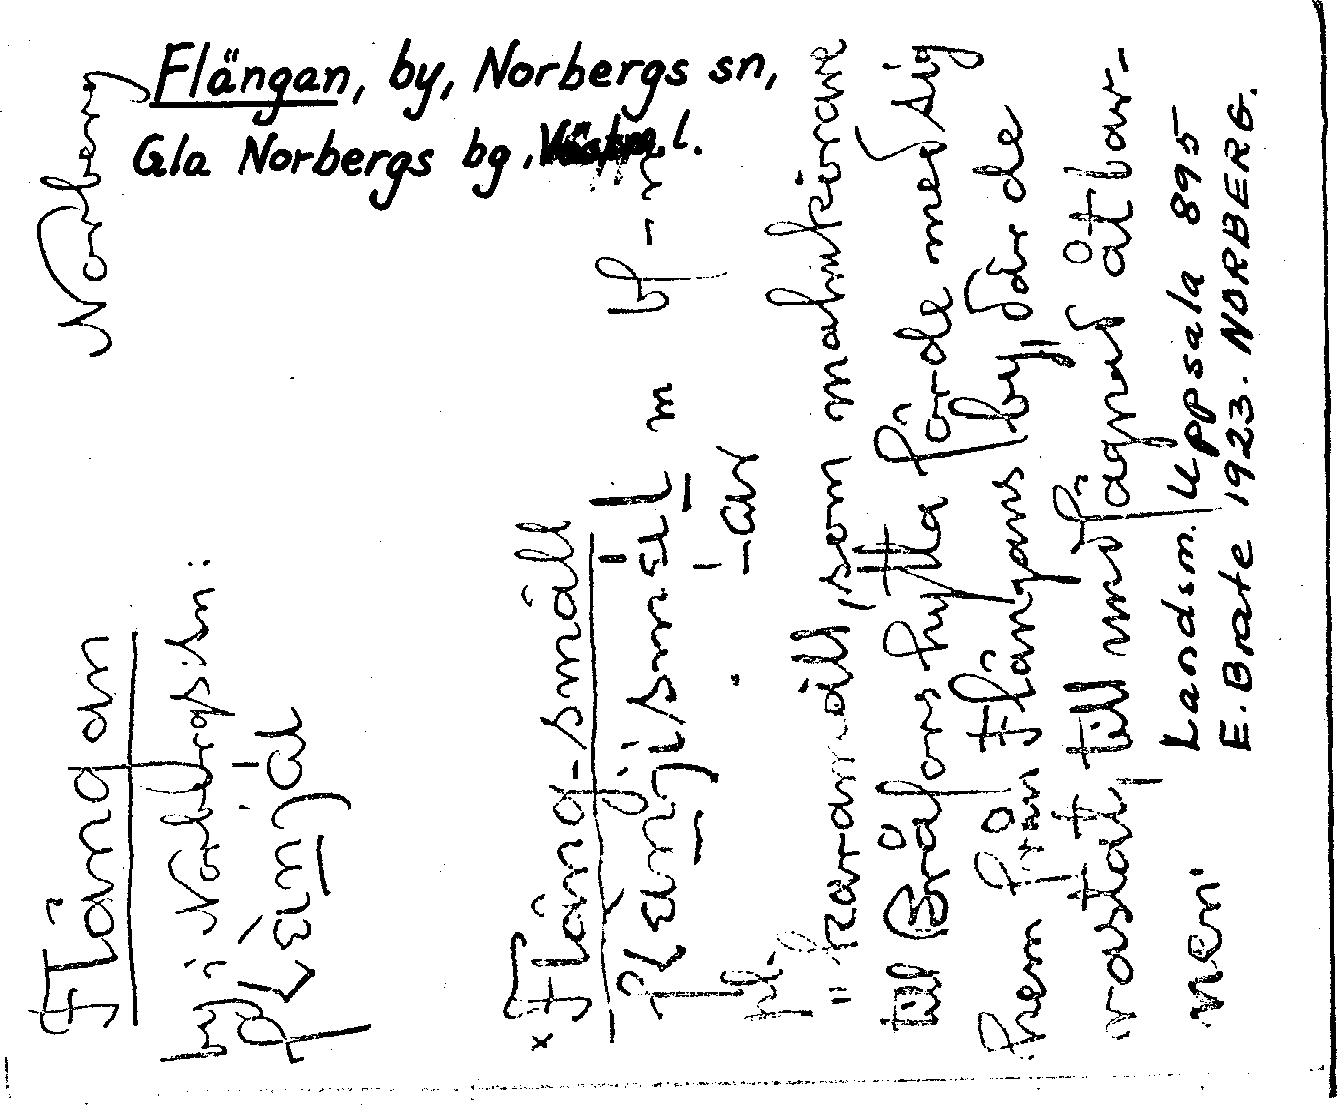 Flängan, by, Norbergs sn,
Gla Norbergs bg, l.
Norberg
Flängan
by i Norbergs sn:
× Fläng-smäll
m
pl. -ar
"karamell, som malmkörare
till Bråfors hytta förde med sig
hem från Flängans by, där de
rastat, till små agnar åt bar-
nen"
Landsm. Uppsala 895
E. Brate 1923. NORBERG.